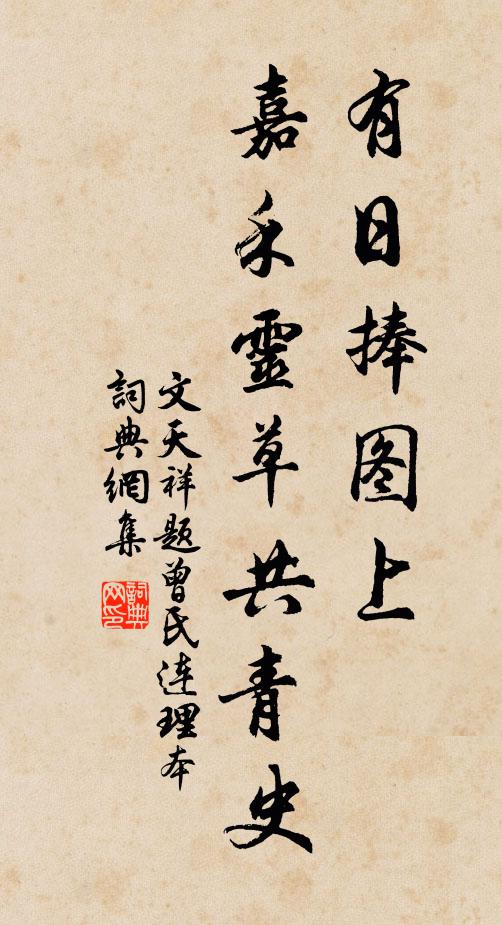 有日捧图上
嘉禾靈草共青史
文天祥題曾氏連理本
詞典網集
詞典网印